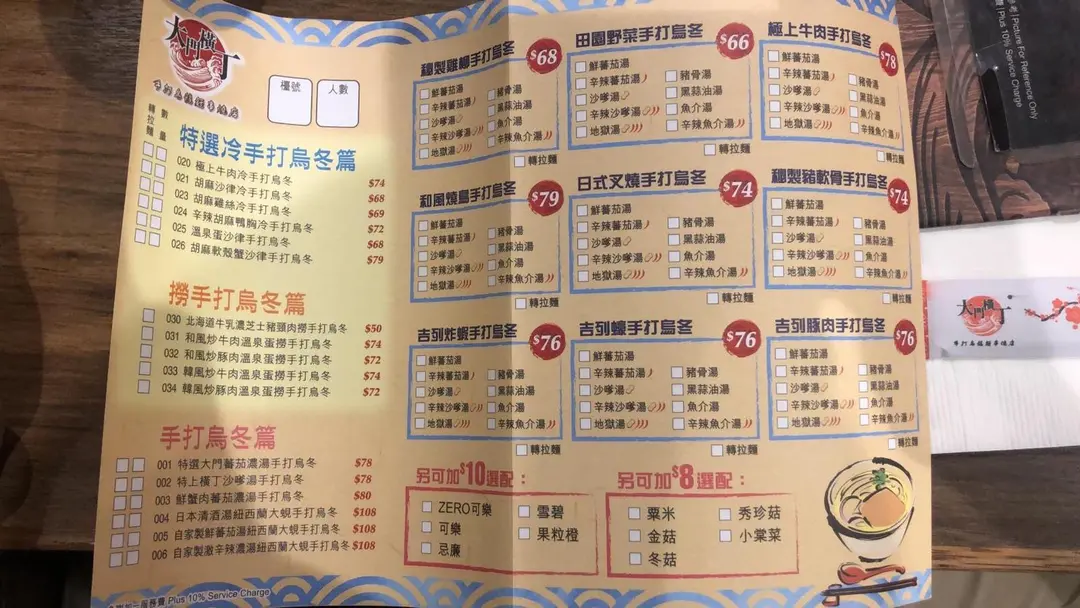 大門橫丁
手打烏冬麵專門店
檯號
人數
轉拉麵
數量
特選冷手打烏冬篇
020 極上牛肉冷手打烏冬 $74
021 胡麻沙律冷手打烏冬 $68
023 胡麻雞絲冷手打烏冬 $69
024 辛辣胡麻鴨胸冷手打烏冬 $72
025 溫泉蛋沙律手打烏冬 $68
026 胡麻軟殼蟹沙律手打烏冬 $79
撈手打烏冬篇
030 北海道牛乳濃芝士豬頸肉撈手打烏冬 $50
031 和風炒牛肉溫泉蛋撈手打烏冬 $74
032 和風炒豚肉溫泉蛋撈手打烏冬 $72
033 韓風炒牛肉溫泉蛋撈手打烏冬 $74
034 韓風炒豚肉溫泉蛋撈手打烏冬 $72
手打烏冬篇
001 特選大門蕃茄濃湯手打烏冬 $78
002 特上橫丁沙嗲湯手打烏冬 $78
003 鮮蟹肉蕃茄濃湯手打烏冬 $80
004 日本清酒湯紐西蘭大蜆手打烏冬 $108
005 自家製鮮蕃茄湯紐西蘭大蜆手打烏冬 $108
006 自家製激辛辣濃湯紐西蘭大蜆手打烏冬 $108
另加一服務費 Plus 10% Service Charge
秘製雞柳手打烏冬 $68
鮮蕃茄湯
辛辣蕃茄湯 豬骨湯
沙嗲湯 黑蒜油湯
辛辣沙嗲湯 魚介湯
地獄湯 辛辣魚介湯
轉拉麵
田園野菜手打烏冬 $66
鮮蕃茄湯
辛辣蕃茄湯 豬骨湯
沙嗲湯 黑蒜油湯
辛辣沙嗲湯 魚介湯
地獄湯 辛辣魚介湯
轉拉麵
極上牛肉手打烏冬 $78
鮮蕃茄湯
辛辣蕃茄湯 豬骨湯
沙嗲湯 黑蒜油湯
辛辣沙嗲湯 魚介湯
地獄湯 辛辣魚介湯
轉拉麵
和風燒鳥手打烏冬 $79
鮮蕃茄湯
辛辣蕃茄湯 豬骨湯
沙嗲湯 黑蒜油湯
辛辣沙嗲湯 魚介湯
地獄湯 辛辣魚介湯
轉拉麵
日式叉燒手打烏冬 $74
鮮蕃茄湯
辛辣蕃茄湯 豬骨湯
沙嗲湯 黑蒜油湯
辛辣沙嗲湯 魚介湯
地獄湯 辛辣魚介湯
轉拉麵
秘製豬軟骨手打烏冬 $74
鮮蕃茄湯
辛辣蕃茄湯 豬骨湯
沙嗲湯 黑蒜油湯
辛辣沙嗲湯 魚介湯
地獄湯 辛辣魚介湯
轉拉麵
吉列炸蝦手打烏冬 $76
鮮蕃茄湯
辛辣蕃茄湯 豬骨湯
沙嗲湯 黑蒜油湯
辛辣沙嗲湯 魚介湯
地獄湯 辛辣魚介湯
轉拉麵
吉列蠔手打烏冬 $76
鮮蕃茄湯
辛辣蕃茄湯 豬骨湯
沙嗲湯 黑蒜油湯
辛辣沙嗲湯 魚介湯
地獄湯 辛辣魚介湯
轉拉麵
吉列豚肉手打烏冬 $76
鮮蕃茄湯
辛辣蕃茄湯 豬骨湯
沙嗲湯 黑蒜油湯
辛辣沙嗲湯 魚介湯
地獄湯 辛辣魚介湯
轉拉麵
另可加$10選配：
ZERO可樂 雪碧
可樂 果粒橙
忌廉
另可加$8選配：
粟米 秀珍菇
金菇 小棠菜
冬菇
Picture For Reference Only
Plus 10% Service Charge
大門橫丁
手打烏冬麵專門店